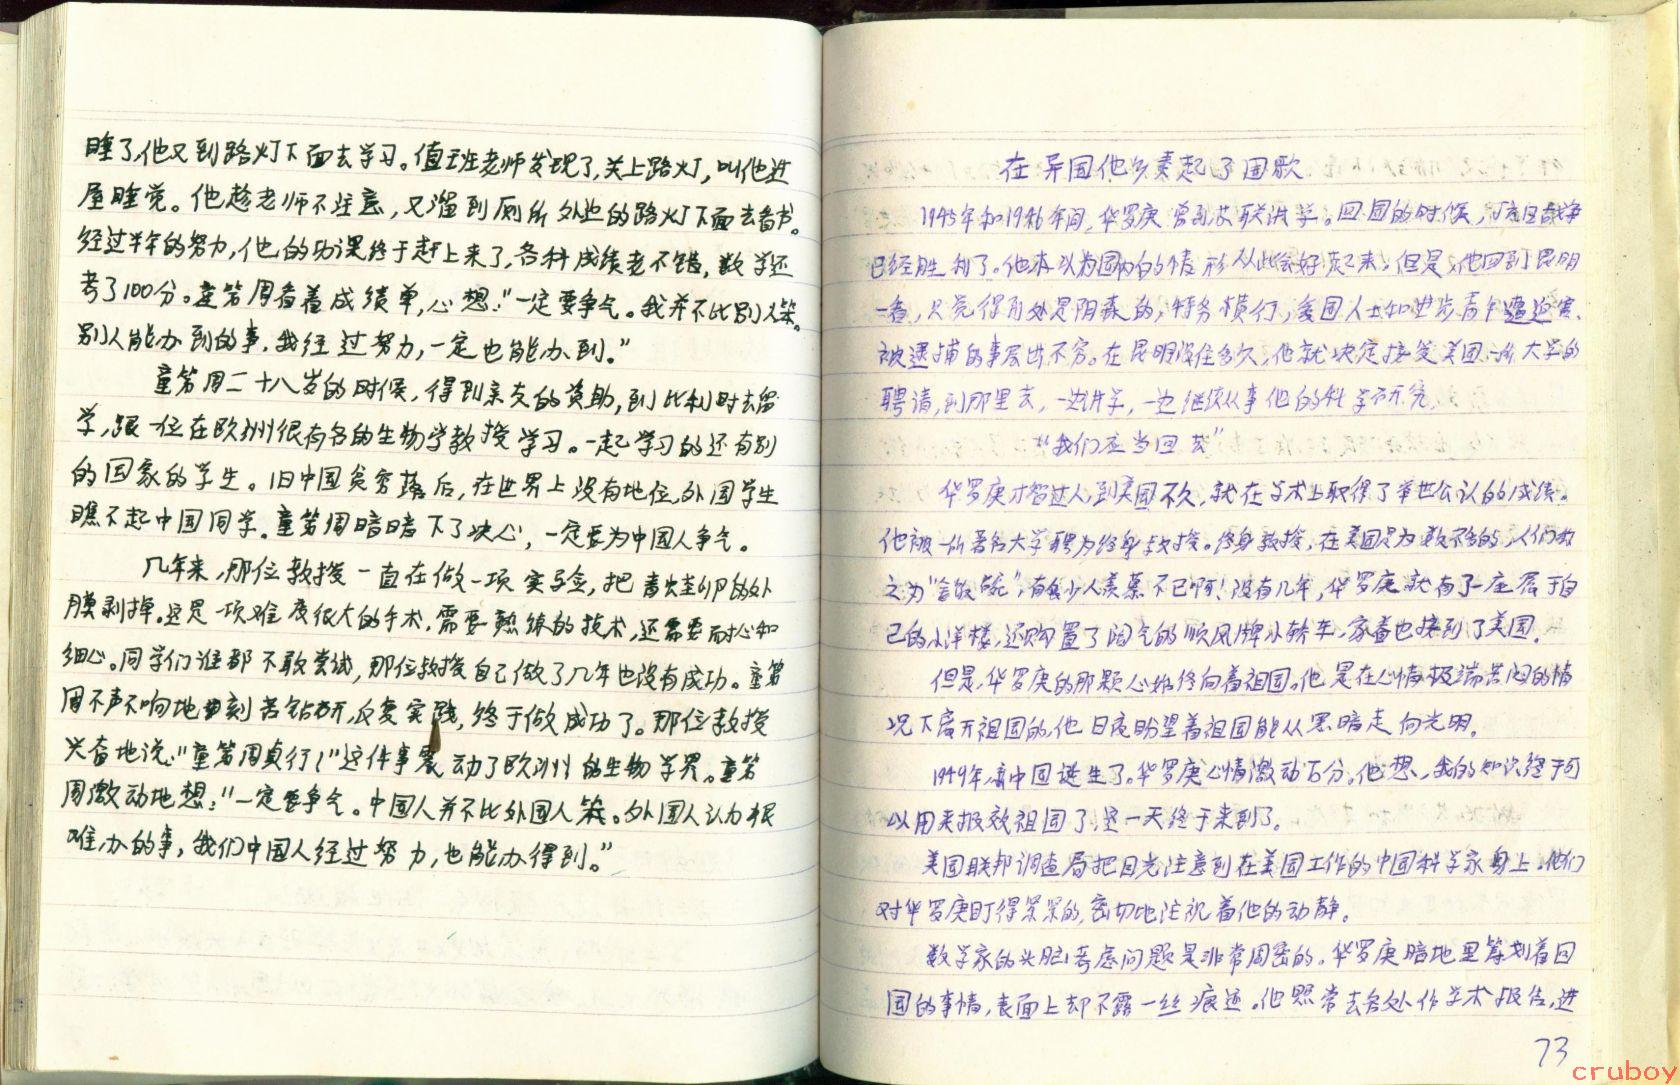 睡了,他又到路灯下面去学习。值班老师发现了,关上路灯,叫他进
屋睡觉。他趁老师不注意,又溜到厕所外边的路灯下面去看书。
经过半年的努力,他的功课终于赶上来了,各科成绩老不错,数学还
考了100分。童第周看着成绩单,心想:"一定要争气。我并不比别人笨。
别人能办到的事,我经过努力,一定也能办到。"
童第周二十八岁的时候,得到亲友的资助,到比利时去留
学,跟一位在欧洲很有名的生物学教授学习。一起学习的还有别
的国家的学生。旧中国贫穷落后,在世界上没有地位,外国学生
瞧不起中国同学。童第周暗暗下了决心,一定要为中国人争气。
几年来,那位教授一直在做一项实验,把青蛙卵的外
膜剥掉。这是一项难度很大的手术,需要熟练的技术,还需要耐心和
细心。同学们谁都不敢尝试,那位教授自己做了几年也没有成功。童第
周不声不响地刻苦钻研,反复实践,终于做成功了。那位教授
兴奋地说:"童第周真行!"这件事震动了欧洲的生物学界。童第
周激动地想:"一定要争气。中国人并不比外国人笨。外国人认为很
难办的事,我们中国人经过努力,也能办得到。"
在异国他乡奏起了国歌
1945年和1946年间,华罗庚曾到苏联讲学。回国的时候,抗日战争
已经胜利了。他本以为国内的情形从此会好起来,但是,他回到昆明
一看,只觉得到处是阴森的,特务横行,爱国人士和进步青年遭迫害、
被逮捕的事层出不穷。在昆明没住多久,他就决定接受美国一所大学的
聘请,到那里去,一边讲学,一边继续从事他的科学研究。
"我们应当回去"
华罗庚才智过人,到美国不久,就在学术上取得了举世公认的成绩。
他被一所著名大学聘为终身教授。终身教授,在美国是为数不多的,人们称
之为"金饭碗",有多少人羡慕不已啊!没有几年,华罗庚就有了一座属于自
己的小洋楼,还购置了阔气的顺风牌小轿车,家眷也接到了美国。
但是,华罗庚的那颗心始终向着祖国。他是在心情极端苦闷的情
况下离开祖国的,他日夜盼望着祖国能从黑暗走向光明。
1949年,新中国诞生了。华罗庚心情激动万分。他想,我的知识终于可
以用来报效祖国了,这一天终于来到了。
美国联邦调查局把目光注意到在美国工作的中国科学家身上。他们
对华罗庚盯得紧紧的,密切地注视着他的动静。
数学家的头脑考虑问题是非常周密的。华罗庚暗地里筹划着回
国的事情,表面上却不露一丝痕迹。他照常去各处作学术报告,进
73
cruboy